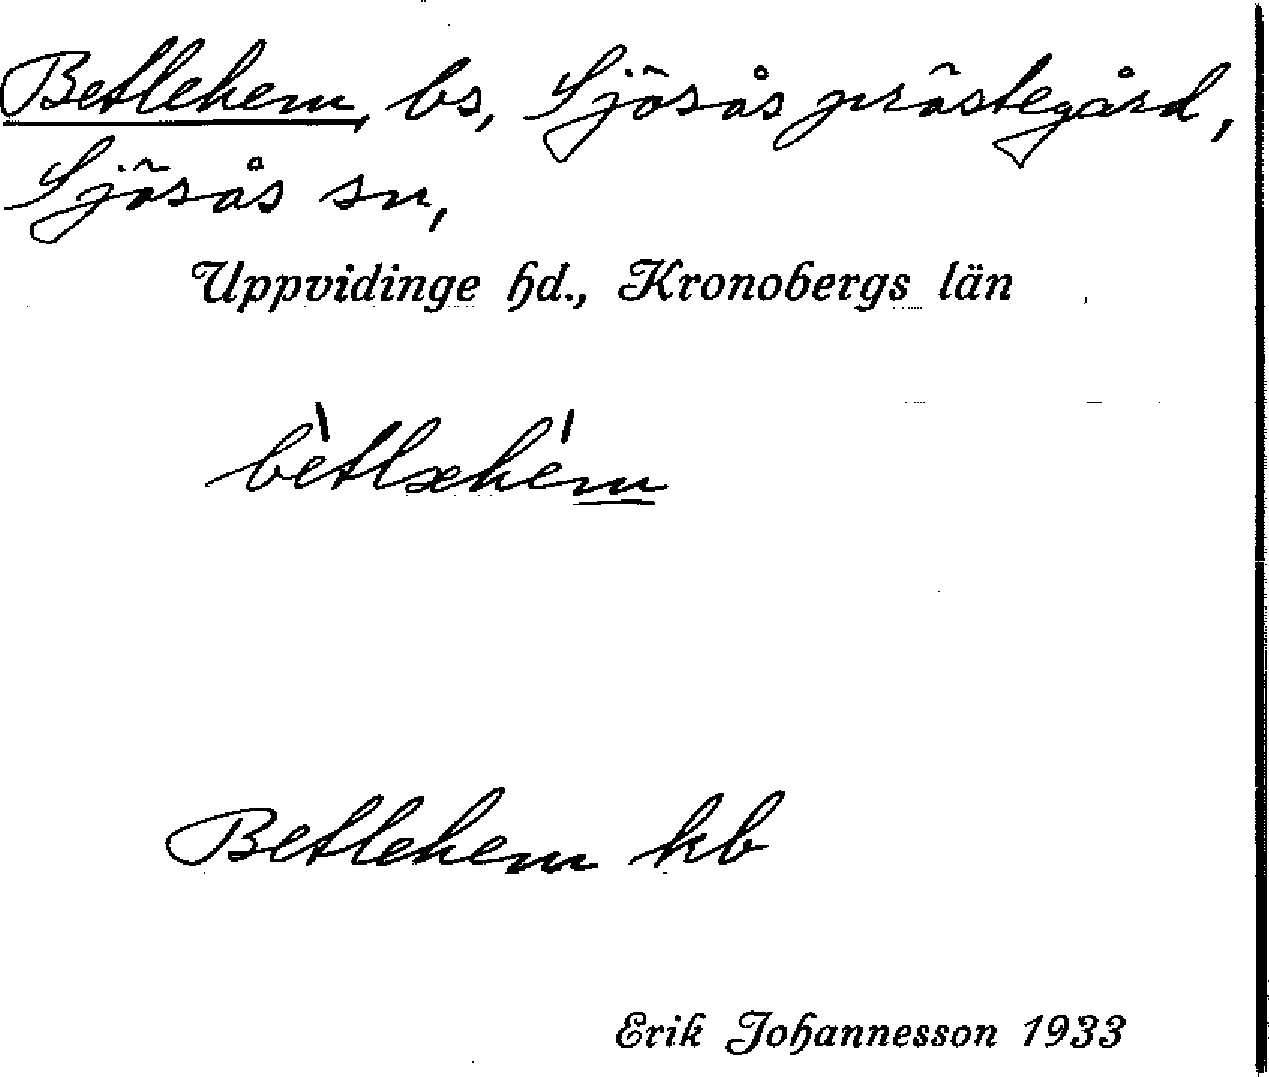 Betlehem, bs, Sjösås prästegård,
Sjösås sn,
Uppvidinge hd., Kronobergs län
bètlæhém
Betlehem kb
Erik Johannesson 1933